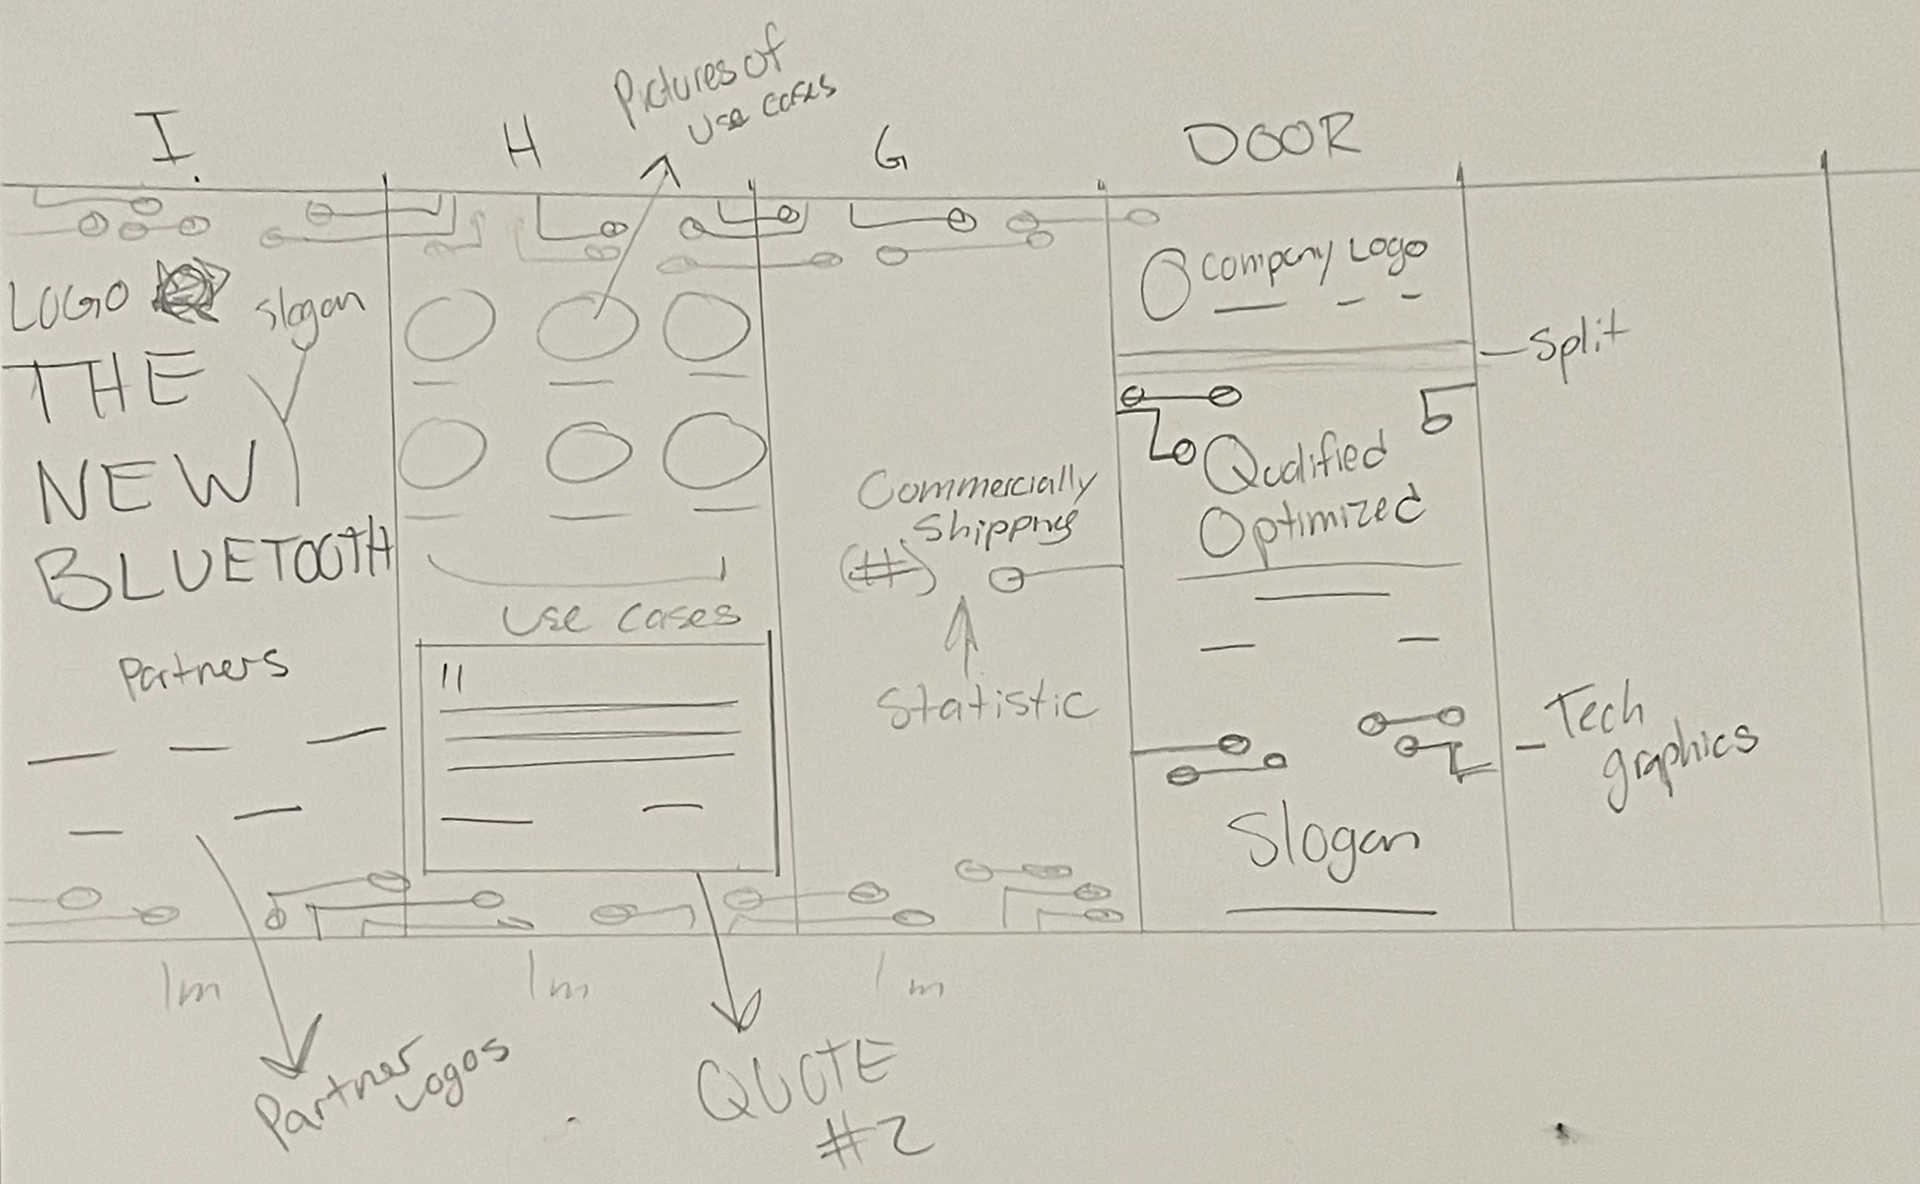 I.
H
Pictures of
use cases
G
DOOR
LOGO
Slogan
THE
NEW
BLUETOOTH
Partners
use cases
"
Commercially
Shipping
(#)
Statistic
Company Logo
Split
Qualified
Optimized
Tech
graphics
Slogan
1m
1m
1m
Partner
Logos
QUOTE
#2